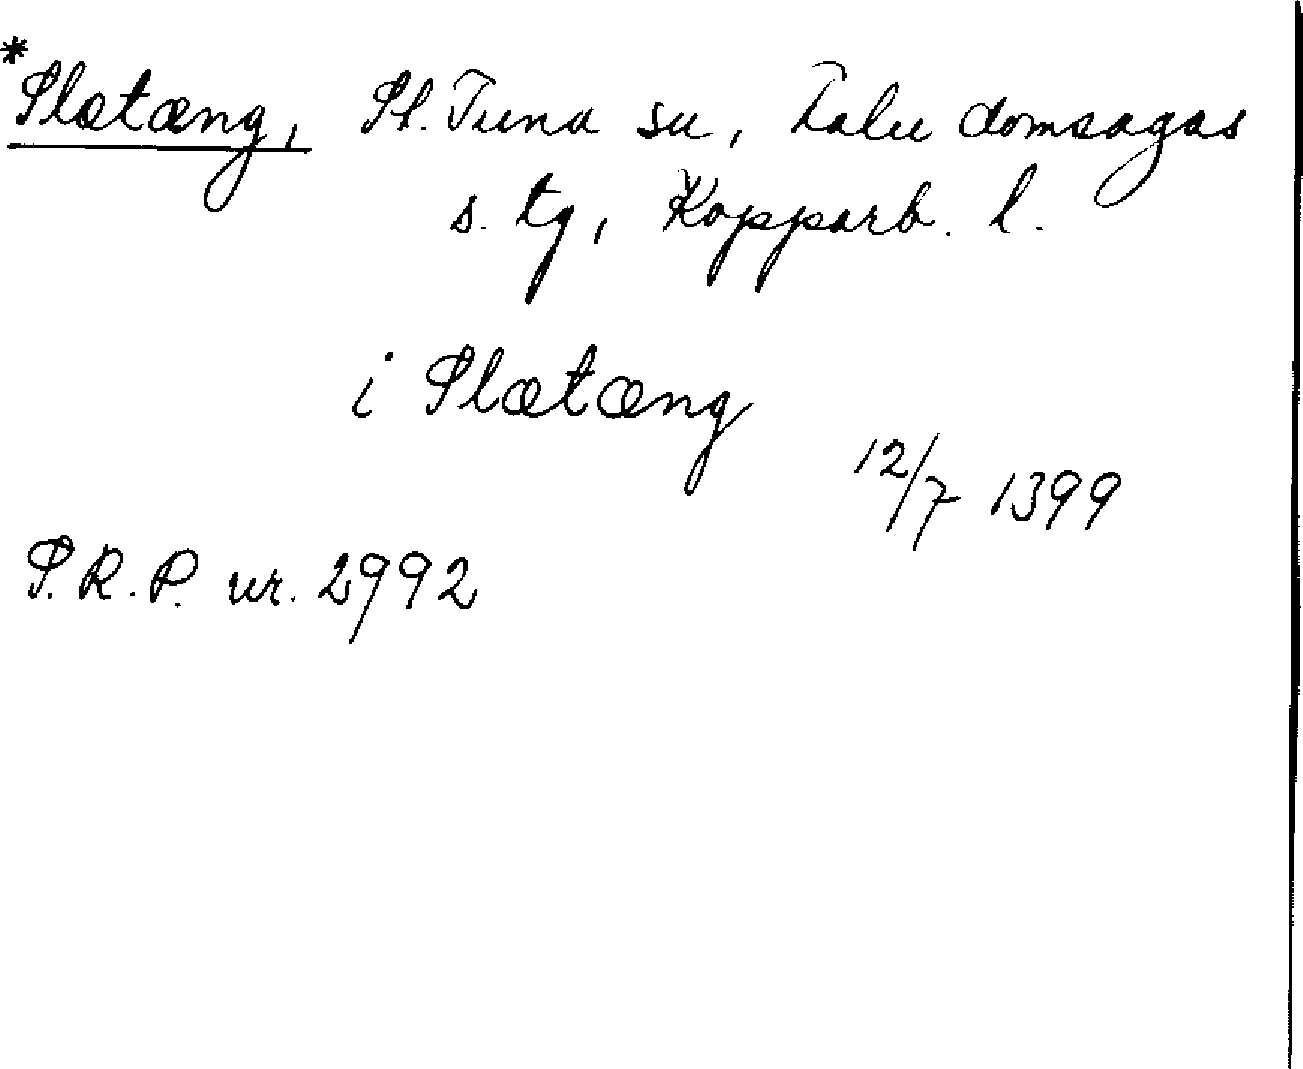 *Slætæng, St. Tuna sn, Falu domsagas
s. tg, Kopparb. l.
i Slætæng
12/7 1399
S.R.P. nr. 2992